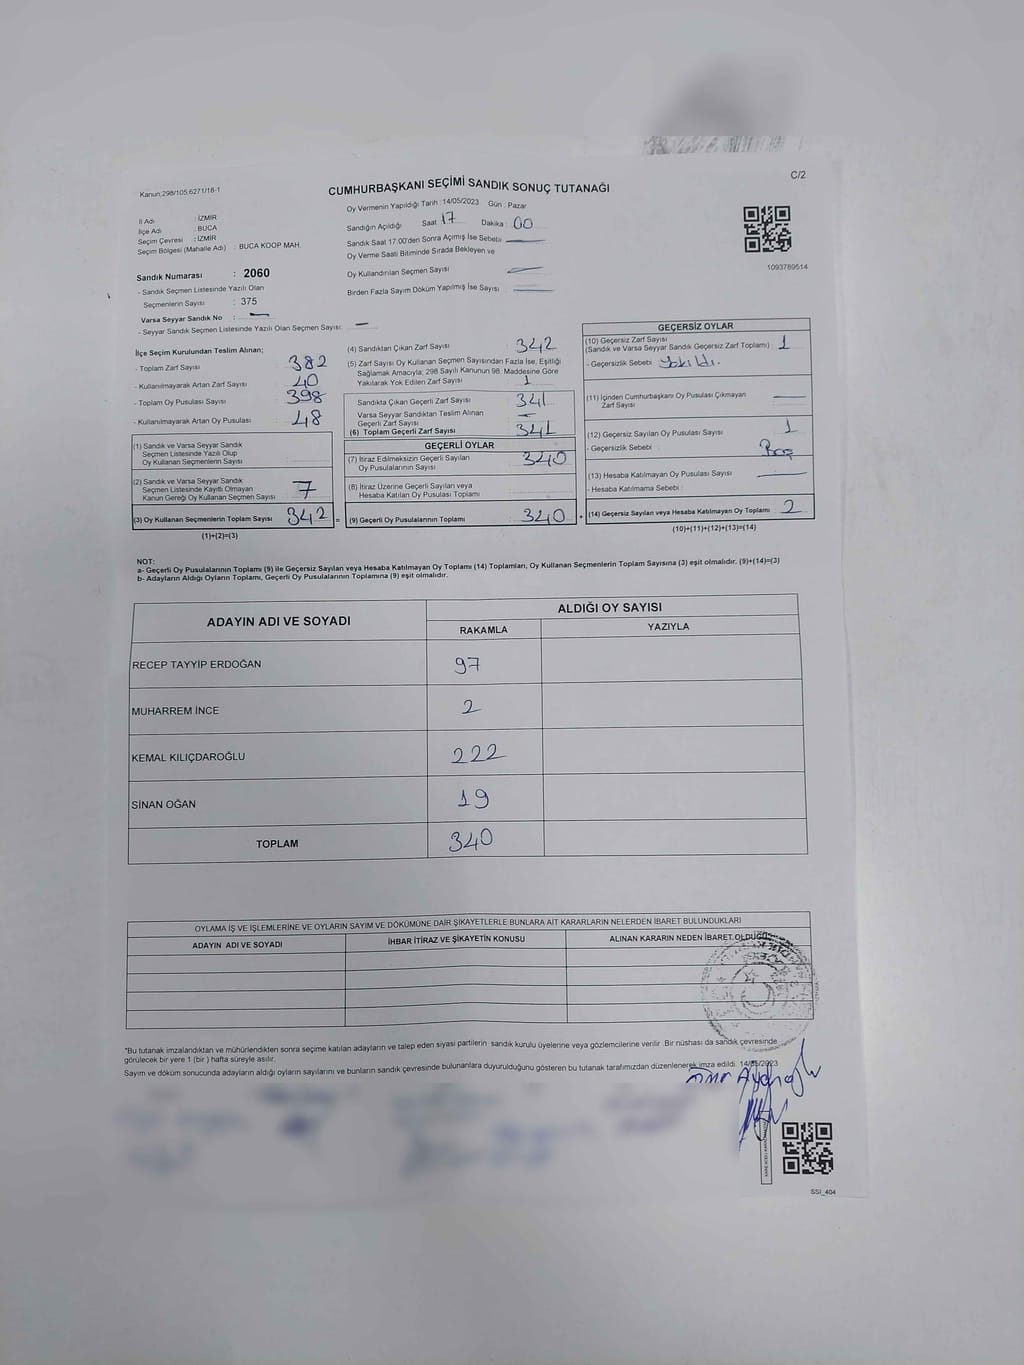 Kanun:298/105,6271/18-1
CUMHURBAŞKANI SEÇİMİ SANDIK SONUÇ TUTANAĞI
C/2
İl Adı : İZMİR
İlçe Adı : BUCA
Seçim Çevresi : İZMİR
Seçim Bölgesi (Mahalle Adı) : BUCA KOOP MAH.
Sandık Numarası : 2060
- Sandık Seçmen Listesinde Yazılı Olan
Seçmenlerin Sayısı : 375
Varsa Seyyar Sandık No : —
- Seyyar Sandık Seçmen Listesinde Yazılı Olan Seçmen Sayısı: —
Oy Vermenin Yapıldığı Tarih : 14/05/2023 Gün : Pazar
Sandığın Açıldığı Saat : 17 Dakika : 00
Sandık Saat 17.00'den Sonra Açımış İse Sebebi —
Oy Verme Saati Bitiminde Sırada Bekleyen ve
Oy Kullandırılan Seçmen Sayısı —
Birden Fazla Sayım Döküm Yapılmış İse Sayısı : —
1093789514
İlçe Seçim Kurulundan Teslim Alınan;
- Toplam Zarf Sayısı : 382
- Kullanılmayarak Artan Zarf Sayısı : 40
- Toplam Oy Pusulası Sayısı : 398
- Kullanılmayarak Artan Oy Pusulası : 48
(1) Sandık ve Varsa Seyyar Sandık
Seçmen Listesinde Yazılı Olup
Oy Kullanan Seçmenlerin Sayısı :
(2) Sandık ve Varsa Seyyar Sandık
Seçmen Listesinde Kayıtlı Olmayan
Kanun Gereği Oy Kullanan Seçmen Sayısı : 7
(3) Oy Kullanan Seçmenlerin Toplam Sayısı : 342
(1)+(2)=(3)
(4) Sandıktan Çıkan Zarf Sayısı : 342
(5) Zarf Sayısı Oy Kullanan Seçmen Sayısından Fazla İse, Eşitliği
Sağlamak Amacıyla; 298 Sayılı Kanunun 98. Maddesine Göre
Yakılarak Yok Edilen Zarf Sayısı : 1
Sandıkta Çıkan Geçerli Zarf Sayısı : 341
Varsa Seyyar Sandıktan Teslim Alınan
Geçerli Zarf Sayısı : —
(6) Toplam Geçerli Zarf Sayısı : 341
GEÇERLİ OYLAR
(7) İtiraz Edilmeksizin Geçerli Sayılan
Oy Pusulalarının Sayısı : 340
(8) İtiraz Üzerine Geçerli Sayılan veya
Hesaba Katılan Oy Pusulası Toplamı :
= (9) Geçerli Oy Pusulalarının Toplamı : 340 +
GEÇERSİZ OYLAR
(10) Geçersiz Zarf Sayısı
(Sandık ve Varsa Seyyar Sandık Geçersiz Zarf Toplamı) : 1
- Geçersizlik Sebebi : Yakıldı.
(11) İçinden Cumhurbaşkanı Oy Pusulası Çıkmayan
Zarf Sayısı : —
(12) Geçersiz Sayılan Oy Pusulası Sayısı : 1
- Geçersizlik Sebebi : Boş
(13) Hesaba Katılmayan Oy Pusulası Sayısı : —
- Hesaba Katılmama Sebebi :
(14) Geçersiz Sayılan veya Hesaba Katılmayan Oy Toplamı : 2
(10)+(11)+(12)+(13)=(14)
NOT:
a- Geçerli Oy Pusulalarının Toplamı (9) ile Geçersiz Sayılan veya Hesaba Katılmayan Oy Toplamı (14) Toplamları, Oy Kullanan Seçmenlerin Toplam Sayısına (3) eşit olmalıdır. (9)+(14)=(3)
b- Adayların Aldığı Oyların Toplamı, Geçerli Oy Pusulalarının Toplamına (9) eşit olmalıdır.
ADAYIN ADI VE SOYADI
ALDIĞI OY SAYISI
RAKAMLA YAZIYLA
RECEP TAYYİP ERDOĞAN 97
MUHARREM İNCE 2
KEMAL KILIÇDAROĞLU 222
SİNAN OĞAN 19
TOPLAM 340
OYLAMA İŞ VE İŞLEMLERİNE VE OYLARIN SAYIM VE DÖKÜMÜNE DAİR ŞİKAYETLERLE BUNLARA AİT KARARLARIN NELERDEN İBARET BULUNDUKLARI
ADAYIN ADI VE SOYADI İHBAR İTİRAZ VE ŞİKAYETİN KONUSU ALINAN KARARIN NEDEN İBARET OLDUĞU
*Bu tutanak imzalandıktan ve mühürlendikten sonra seçime katılan adayların ve talep eden siyasi partilerin sandık kurulu üyelerine veya gözlemcilerine verilir. Bir nüshası da sandık çevresinde
görülecek bir yere 1 (bir ) hafta süreyle asılır.
Sayım ve döküm sonucunda adayların aldığı oyların sayılarını ve bunların sandık çevresinde bulunanlara duyurulduğunu gösteren bu tutanak tarafımızdan düzenlenerek imza edildi. 14/05/2023
SSİ_404